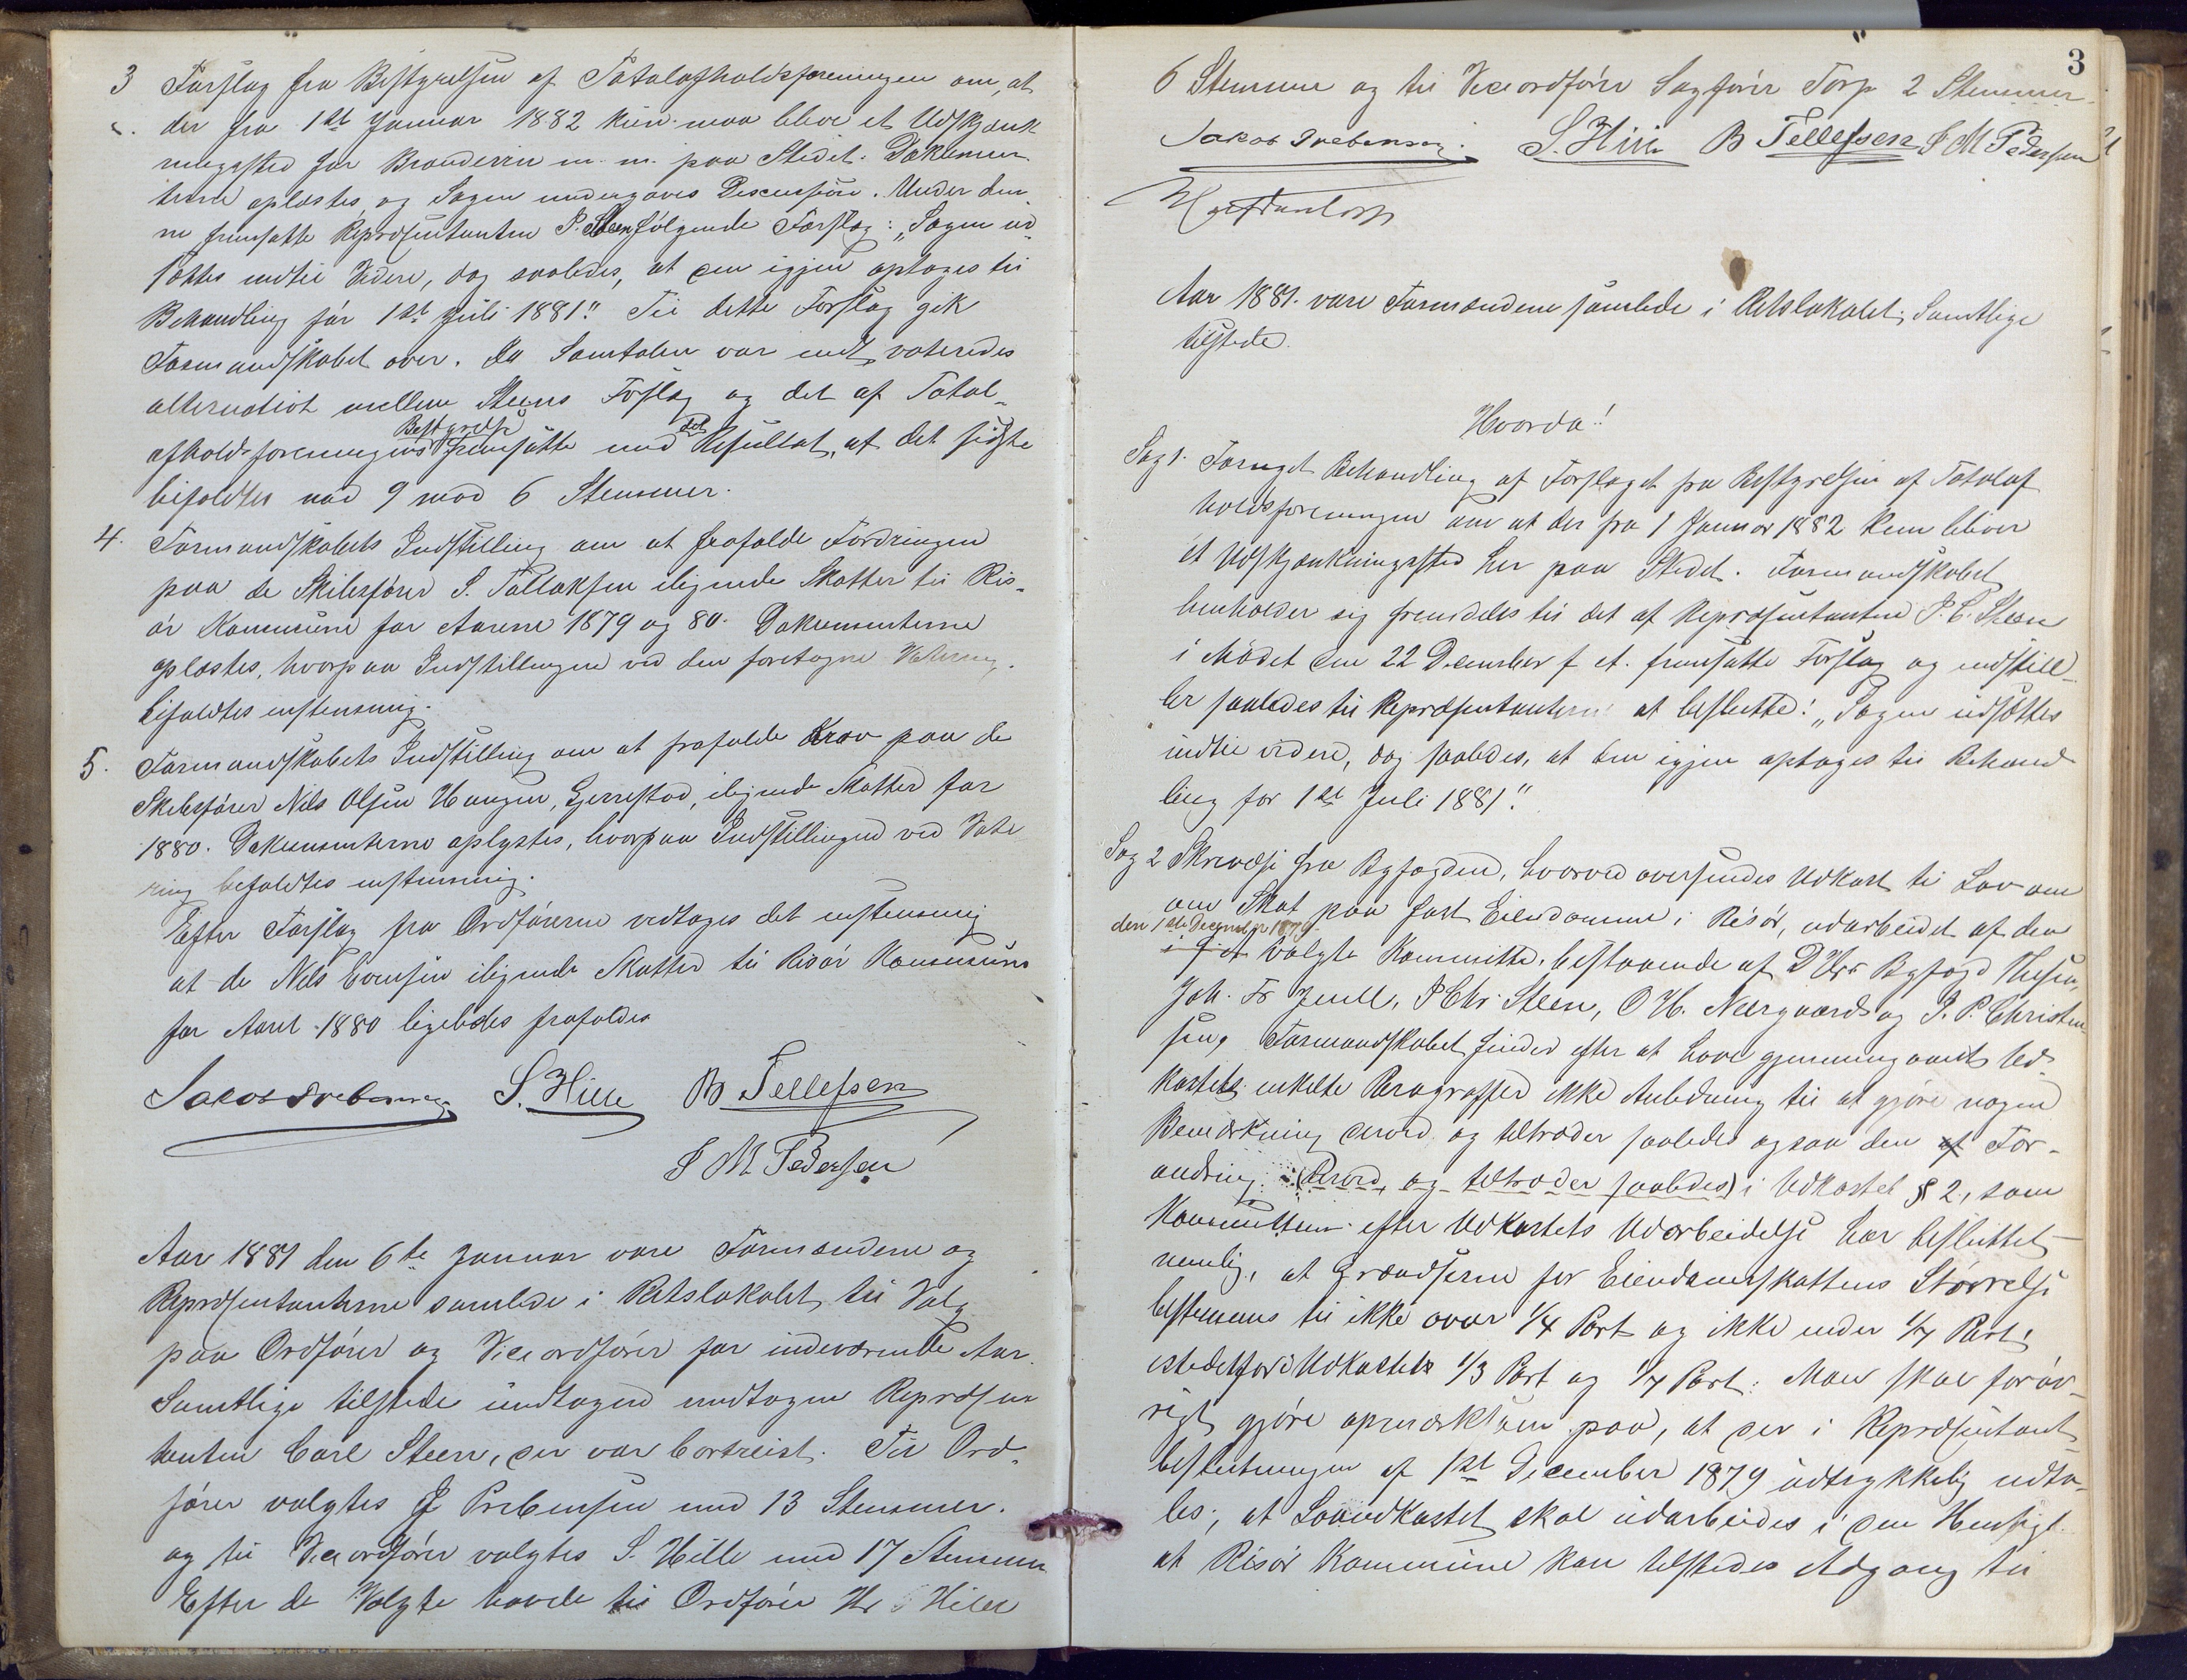 3 Forslag fra Bestyrelsen af Totalafholdsforeningen om, at
der fra 1ste Januar 1882 kun maa blive et Udskjænk
ningssted for Brændeviin m. m. paa Stedet. Dokumen
terne oplæstes og Sagen undergaves Discussion. Under den
ne fremsatte Repræsentanten P. Steen følgende Forslag: „Sagen ud
sættes indtil Videre, dog saaledes, at den igjen optages til
Behandling før 1ste Juli 1881." Til dette Forslag gik
Formandskabet over. Da Samtalen var endt, voteredes
alternativt mellem Steens Forslag og det af Total-
afholdsforeningens Bestyrelse fremsatte med det Resultat, at det sidste
bifaldtes med 9 mod 6 Stemmer.
4. Formandskabets Indstilling om at frafalde Fordringen
paa de Skibsfører S. Tallaksen ilignede Skatter til Ris-
ør Kommune for Aarene 1879 og 80. Dokumenterne
oplæstes, hvorpaa Indstillingen ved den foretagne Votering
bifaldtes enstemmig.
5. Formandskabets Indstilling om at frafalde Krav paa de
Skibsfører Nils Olsen Haugen, Gjerrestad, ilignede Skatter for
1880. Dokumenterne oplystes, hvorpaa Indstillingen ved Vote
ring bifaldtes enstemmig.
Efter Forslag fra Ordføreren vedtoges det enstemmig
at de Nils ilignede Skatter til Risør Kommune
for Aaret 1880 ligeledes frafaldes
Jakob Prebensen S. Hille B Tellefsen
S M Pedersen
Aar 1881 den 6te Januar vare Formændene og
Repræsentanterne samlede i Retslokalet til Valg
paa Ordfører og Viceordfører for indeværende Aar.
Samtlige tilstede undtagen undtagen Repræsen
tanten Carl Steen, der var bortreist. Til Ord-
fører valgtes J Prebensen med 13 Stemmer.
og til Viceordfører valgtes S. Hille med 17 Stemmer
Efter de Valgte havde til Ordfører Hr S Hille
3
6 Stemmer og til Viceordfører Sagfører Torp 2 Stemmer.
Jakob Prebensen. S. Hille B Tellefsen S M Pedersen
Aar 1881. vare Formændene samlede i Retslokalet, Samtlige
tilstede.
Hvorda!
Sag 1. Fornyet Behandling af Forslaget fra Bestyrelsen af Totalaf
holdsforeningen om at der fra 1 Januar 1882 kun bliver
et Udskjænkningssted her paa Stedet. Formandskabet
henholder sig fremdeles til det af Repræsentanten P. C. Steen
i Mødet den 22 December f. A. fremsatte Forslag og indstill-
ler saaledes til Repræsentanterne at beslutte: „Sagen udsættes
indtil videre, dog saaledes, at den igjen optages til Behand
ling før 1ste Juli 1881."
Sag 2 Skrivelse fra Byfogden, hvorved oversendes Udkast til Lov om
om Skat paa fast Eiendomme i Risør, udarbeidet af den
den 1ste December 1879
i f. A. valgte Kommitte, bestaaende af DHrr Byfogd
Joh. Fr Juell, P Chr. Steen, O H. Neergaard og J. P. Christen-
sen, Formandskabet finder efter at have gjennemgaaet Ud-
kastets enkelte Paragraffer ikke Anledning til at gjøre nogen
Bemærkning derved og tiltræder saaledes ogsaa den af For-
andring (derved, og tiltræder saaledes) i Udkastet § 2, som
Kommitteen efter Udkastets Udarbeidelse har besluttet
nemlig, at Grændserne for Eiendomsskattens Størrelse
bestemmes til ikke over 1/4 Part og ikke under 1/7 Part,
istedetfor i Udkastet 1/3 Part og 1/7 Part. Man skal forøv-
rigt gjøre opmærksom paa, at der i Repræsentant-
beslutningen af 1ste December 1879 udtrykkelig udta-
les, at Lovudkastet skal udarbeides i den Hensigt
at Risør Kommune kan tilstedes Adgang til